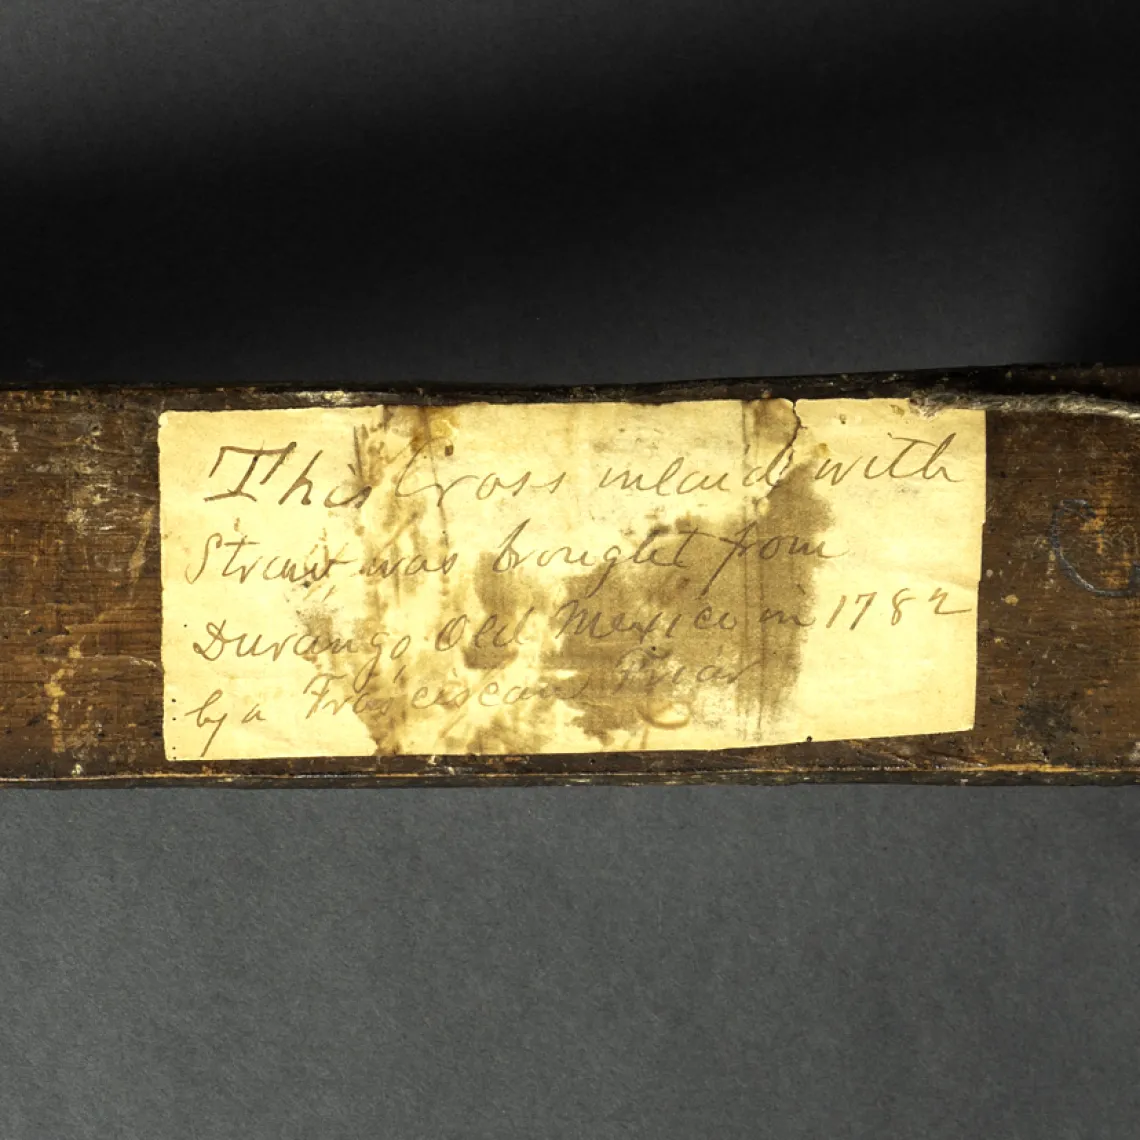 This Cross inlaid with
Straw was brought from
Durango Old Mexico in 1782
by a Franciscan Friar
C